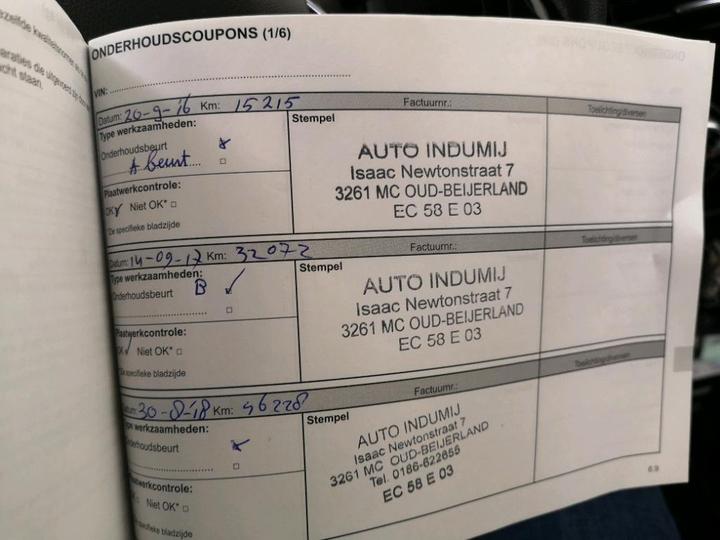 ezelfde kwaliteitsnormen
araties die uitgevoerd zijn
cht staan.
ONDERHOUDSCOUPONS (1/6)
VIN:
Datum: 20-9-16 Km: 15215 Factuurnr.: Toelichting/diversen
Type werkzaamheden:
Stempel
Onderhoudsbeurt
A beurt
Plaatwerkcontrole:
OK Niet OK*
*De specifieke bladzijde
AUTO INDUMIJ
Isaac Newtonstraat 7
3261 MC OUD-BEIJERLAND
EC 58 E 03
Datum: 14-09-17 Km: 32072 Factuurnr.: Toelichting/diversen
Type werkzaamheden:
Stempel
Onderhoudsbeurt B
Plaatwerkcontrole:
OK Niet OK*
*De specifieke bladzijde
AUTO INDUMIJ
Isaac Newtonstraat 7
3261 MC OUD-BEIJERLAND
EC 58 E 03
Datum: 30-8-18 Km: 46228 Factuurnr.: Toelichting/diversen
Type werkzaamheden:
Stempel
Onderhoudsbeurt
Plaatwerkcontrole:
Niet OK*
specifieke bladzijde
AUTO INDUMIJ
Isaac Newtonstraat 7
3261 MC OUD-BEIJERLAND
Tel. 0186-622655
EC 58 E 03
6.9